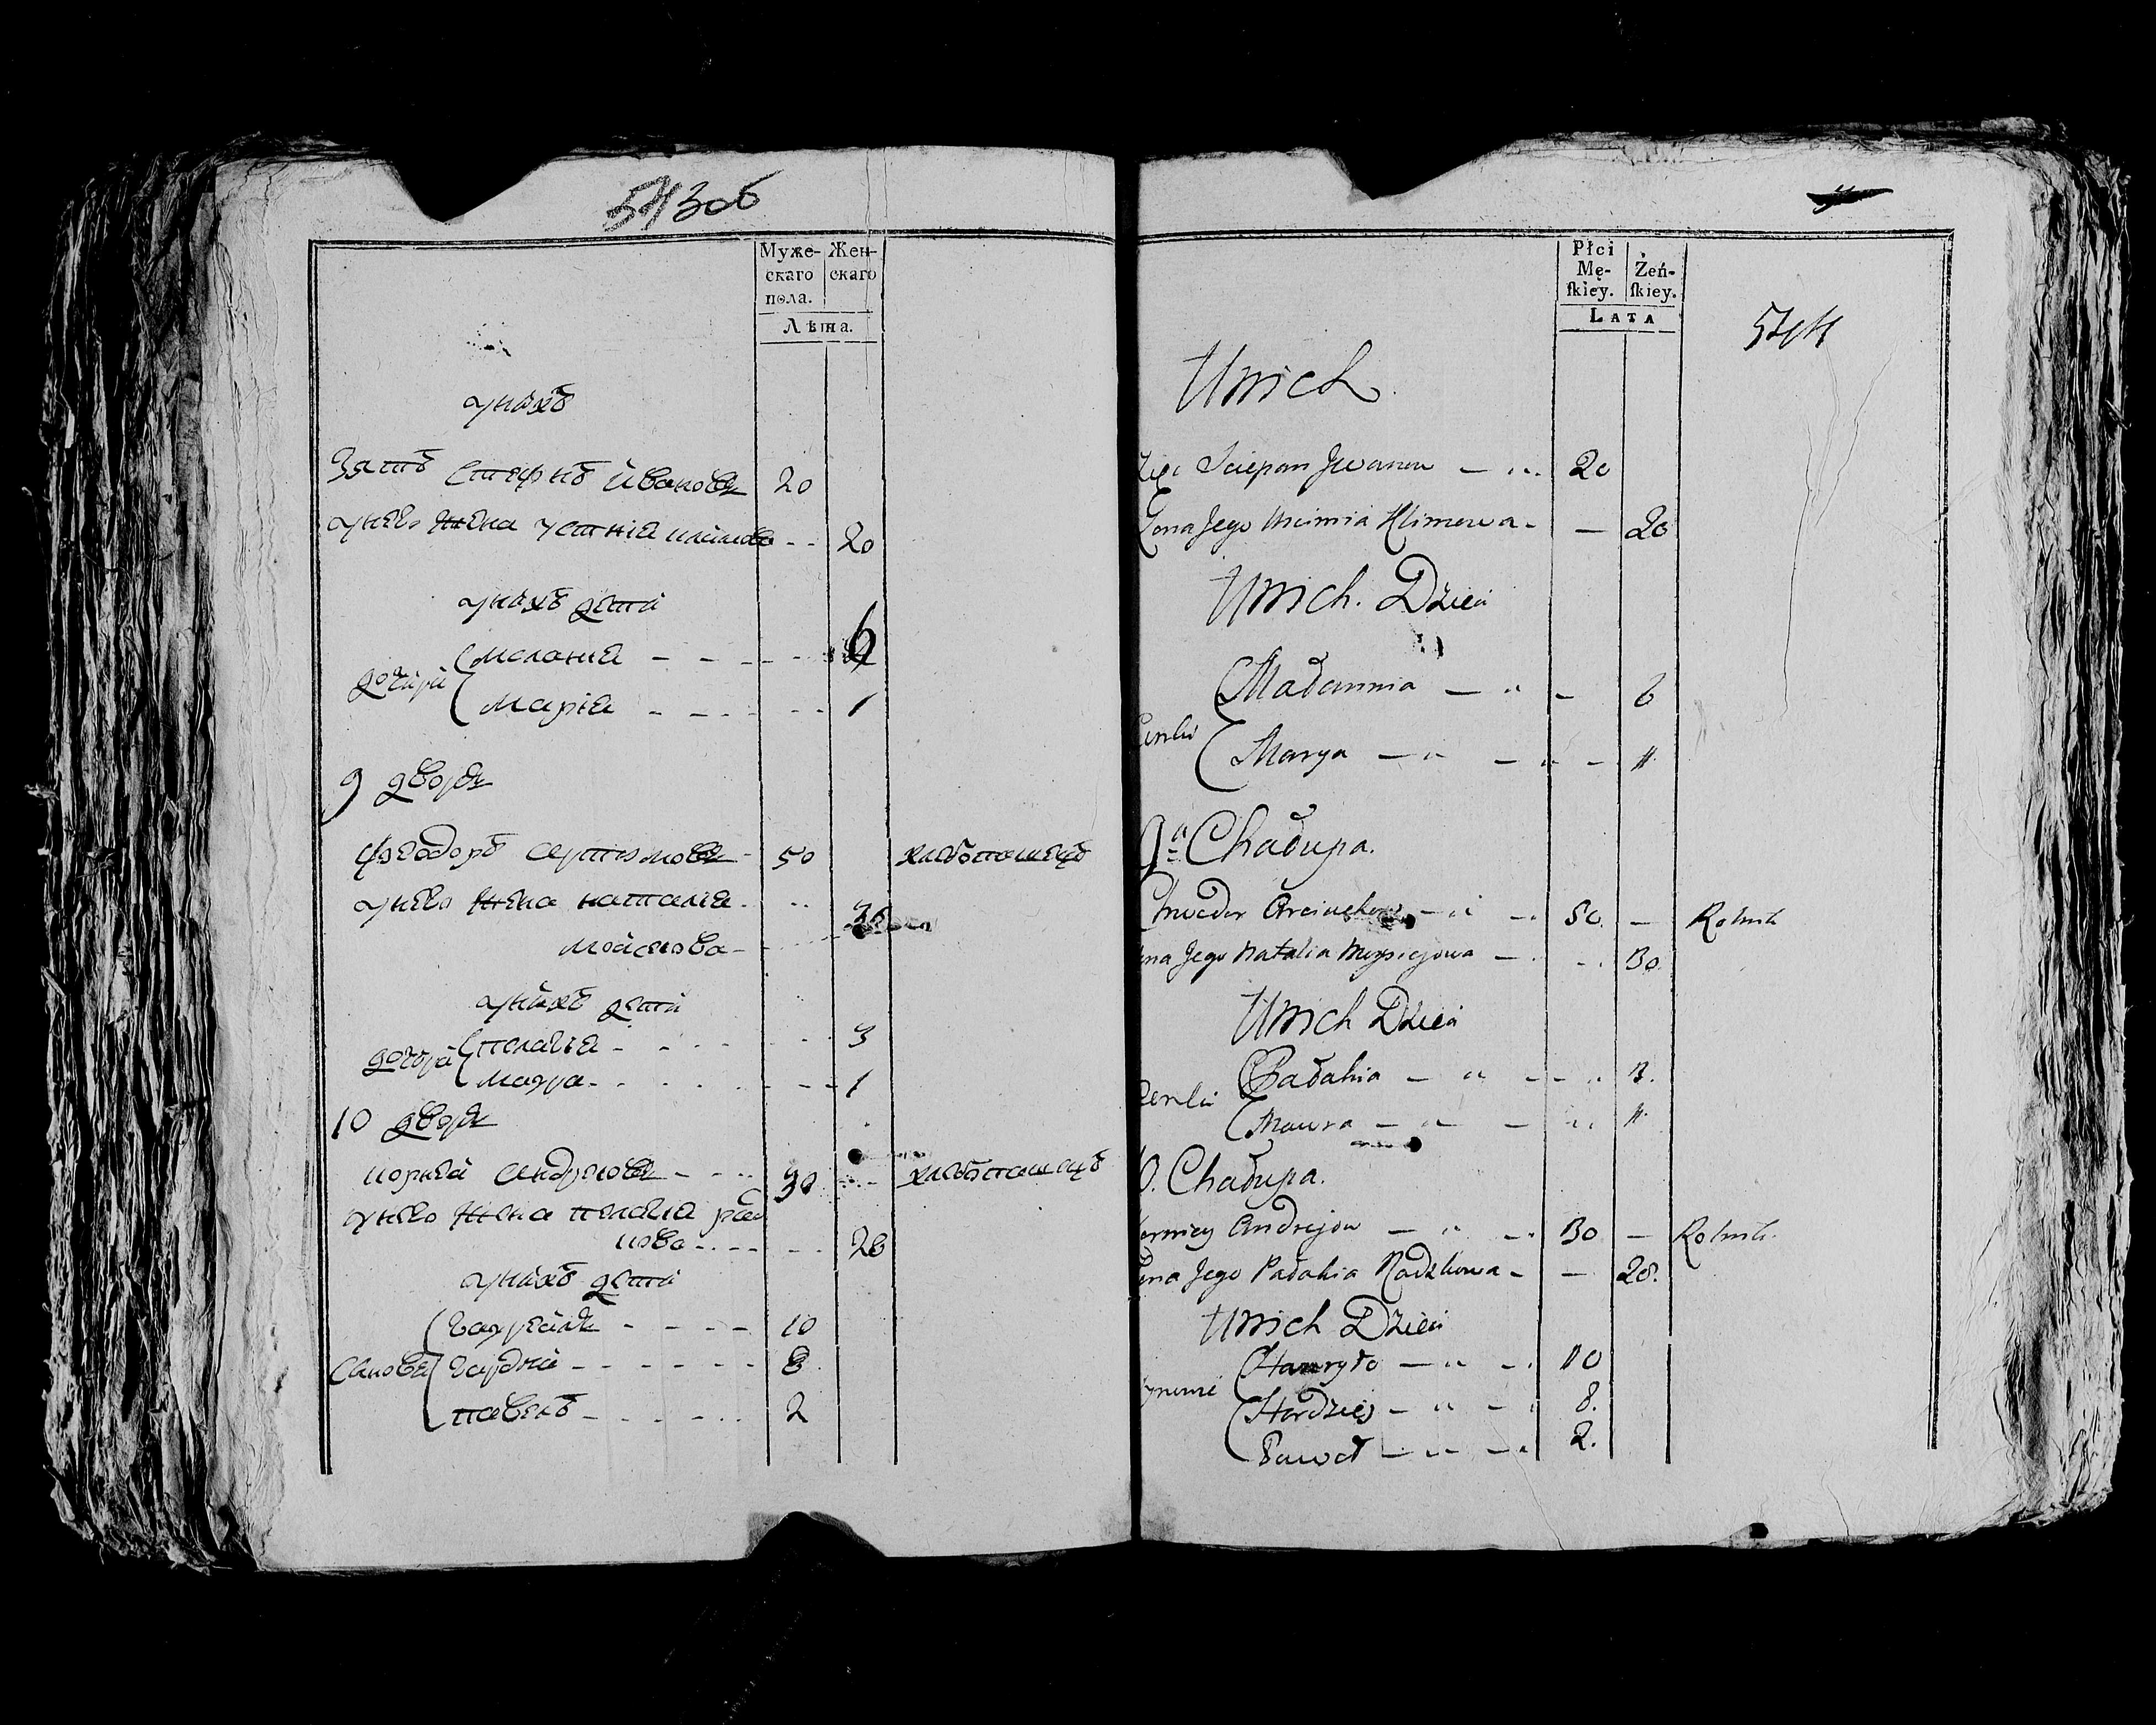 543об
Муже-
скаго
пола.
Жен-
скаго
Лѣта.
унихъ
Зять Стефнъ Ивановъ 20
унево жена устиніа климова - - 20
унихъ дети
дочери
Меланиа - - - - - 6
Мариа - - - - - 1
9 дворъ
Фзеодоръ артюховъ - 50 хлебопашецъ
унево жена наталиа - - -
мойсеова -
унихъ дети
дочери
пелагиа - - - - - 3
Мавра - - - - - 1
10 дворъ
корнѣй андреовъ - - - 30 - - хлебопашецъ
унево жена пелагиа
кова - - - - - 28
унихъ дети
Сынове
гаурѣйлъ - - - - 10
гардѣй - - - - - 8
павелъ - - - - - 2
Płci
Mę-
skiey.
Żeń-
skiey.
LATA
544
Unich
Zięć Sciepan Jwanow — 20
Żona Jego Uscinia Klimowa - — 20
Unich. Dzieci
Małannia — 6
Marya — 1
9a Chałupa.
Chwedor Arciuchow — 50. — Rolnik
Żona Jego Natalia Moysiejowa — 30.
Unich Dzieci
Pałahia — 3.
Maura — 1
10. Chałupa.
Korniey Andrejow — 30 — Rolnik.
Żona Jego Pałahia Radzkowa - — 28.
Unich Dzieci
Synowie
Hawryło — 10
Hordziej — 8.
Paweł — 2.